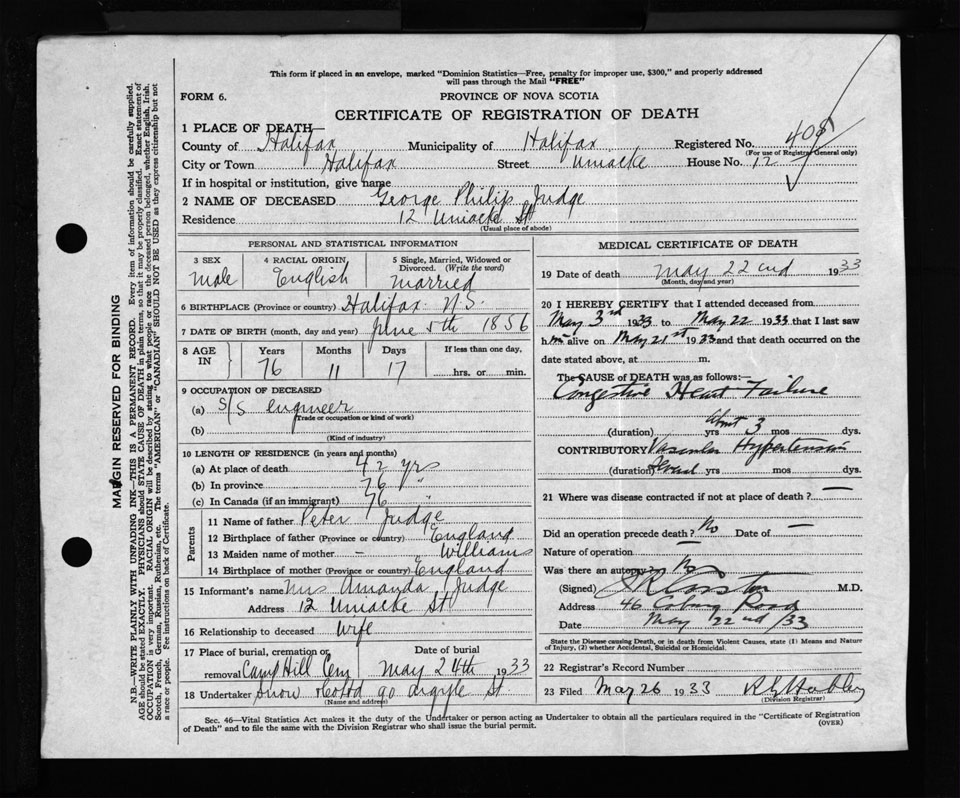 This form if placed in an envelope, marked "Dominion Statistics—Free, penalty for improper use, $300," and properly addressed
will pass through the Mail "FREE"
FORM 6.
PROVINCE OF NOVA SCOTIA
CERTIFICATE OF REGISTRATION OF DEATH
1 PLACE OF DEATH—
County of Halifax Municipality of Halifax Registered No. 408
(For use of Registrar General only)
City or Town Halifax Street Uniacke House No. 12
If in hospital or institution, give name
2 NAME OF DECEASED George Philip Judge
Residence 12 Uniacke St
(Usual place of abode)
PERSONAL AND STATISTICAL INFORMATION
3 SEX 4 RACIAL ORIGIN 5 Single, Married, Widowed or
Divorced. (Write the word)
Male English Married
6 BIRTHPLACE (Province or country) Halifax N.S.
7 DATE OF BIRTH (month, day and year) June 5th 1856
8 AGE IN Years Months Days If less than one day,
76 11 17 hrs. or min.
9 OCCUPATION OF DECEASED
(a) S/S engineer
Trade or occupation or kind of work)
(b)
(Kind of industry)
10 LENGTH OF RESIDENCE (in years and months)
(a) At place of death 42 yrs
(b) In province 76 "
(c) In Canada (if an immigrant) 76 "
Parents
11 Name of father Peter Judge
12 Birthplace of father (Province or country) England
13 Maiden name of mother — Williams
14 Birthplace of mother (Province or country) England
15 Informant's name Mrs Amanda Judge
Address 12 Uniacke St
16 Relationship to deceased Wife
17 Place of burial, cremation or Date of burial
removal Camp Hill Cem May 24th 1933
18 Undertaker Snow & Co Ltd 90 Argyle St
(Name and address)
MEDICAL CERTIFICATE OF DEATH
19 Date of death May 22nd 1933
(Month, day and year)
20 I HEREBY CERTIFY that I attended deceased from
May 3rd 1933 to May 22 1933 that I last saw
him alive on May 21st 1933 and that death occurred on the
date stated above, at m.
The CAUSE OF DEATH was as follows:—
Congestive Heart Failure
(duration) yrs about 3 mos dys.
CONTRIBUTORY Vascular Hypertension
(duration) Several yrs mos dys.
21 Where was disease contracted if not at place of death? —
Did an operation precede death? No Date of —
Nature of operation —
Was there an autopsy? No
(Signed) M.D.
Address 46 Coburg Road
Date May 22nd /33
State the Disease causing Death, or in death from Violent Causes, state (1) Means and Nature
of Injury, (2) whether Accidental, Suicidal or Homicidal.
22 Registrar's Record Number
23 Filed May 26 1933
(Division Registrar)
Sec. 46—Vital Statistics Act makes it the duty of the Undertaker or person acting as Undertaker to obtain all the particulars required in the "Certificate of Registration
of Death" and to file the same with the Division Registrar who shall issue the burial permit.
(OVER)
MARGIN RESERVED FOR BINDING
N.B.—WRITE PLAINLY WITH UNFADING INK—THIS IS A PERMANENT RECORD. Every item of information should be carefully supplied.
AGE should be stated EXACTLY. PHYSICIANS should STATE CAUSE OF DEATH in plain terms, so that it may be properly classified. Exact statement of
OCCUPATION is very important. RACIAL ORIGIN will be described by stating to what people or race the deceased person belonged, whether English, Irish,
Scotch, French, German, Russian, Ruthenian, etc. The terms "AMERICAN" or "CANADIAN" SHOULD NOT BE USED as they express citizenship but not
a race or people. See instructions on back of Certificate.